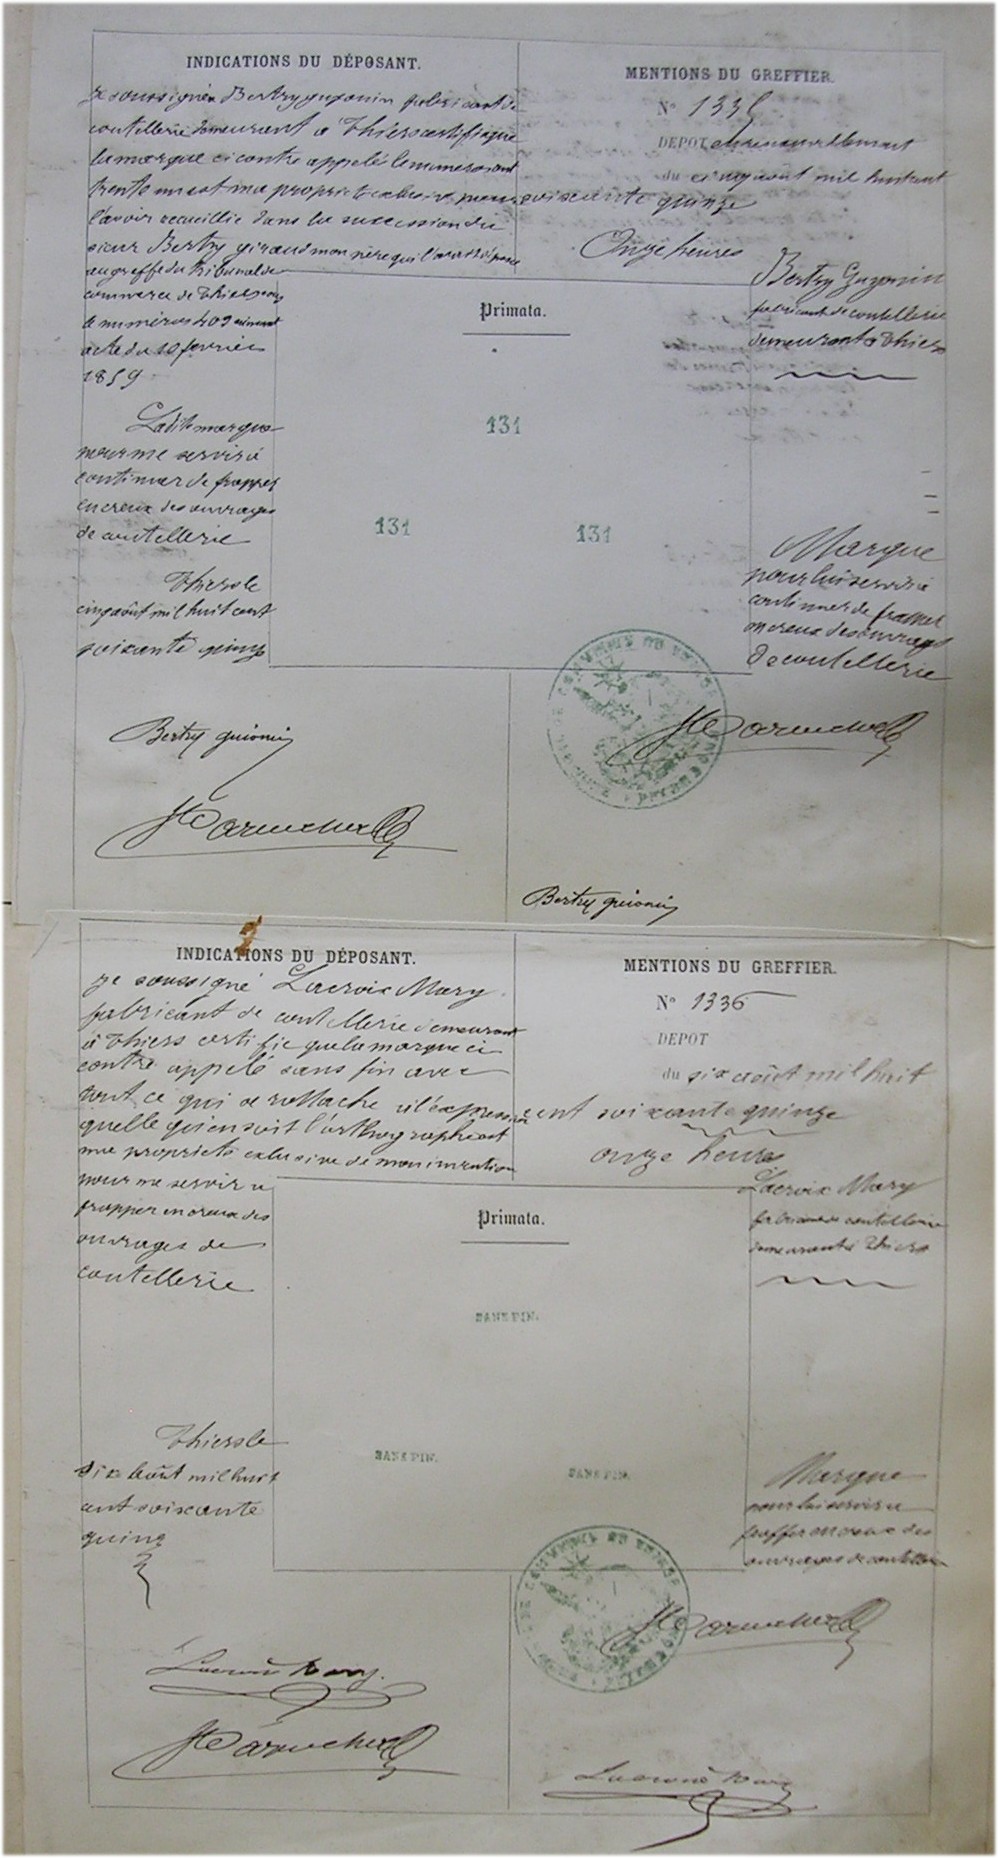 INDICATIONS DU DÉPOSANT.
Je soussigné Bertry guionin fabricant de
coutellerie demeurant à Thiers certifie que
la marque ci contre appelée le numero cent
trente un est ma propriété exclusive pour
l'avoir recueillie dans la succession du
sieur Bertry giraud mon père qui l'avait déposé
au greffe du tribunal de
commerce de Thiers sous
le numéros 409 suivant
acte du 10 fevrier
1859
Ladite marque
pour me servir à
continuer de frapper
en creux des ouvrages
de coutellerie
Thiers le
cinq août mil huit cent
soixante quinze
Bertry guionin
MENTIONS DU GREFFIER.
N° 1335
DEPOT en renouvellement
du cinq août mil huit cent
soixante quinze
Onze heures
Bertry Guionin
fabricant de coutellerie
demeurant à Thiers
Primata.
131
131
131
Marque
pour lui servir à
continuer de frapper
en creux des ouvrages
de coutellerie
Bertry guionin
INDICATIONS DU DÉPOSANT.
Je soussigné Lacroix Mary
fabricant de coutellerie demeurant
à Thiers certifie que la marque ci
contre appelé sans fin avec
tout ce qui se rattache à l'expression
quelle qu'en soit l'orthographe est
ma propriété exclusive de mon invention
pour me servir a
frapper en creux des
ouvrages de
coutellerie
Thiers le
six août mil huit
cent soixante
quinze
Lacroix Mary
MENTIONS DU GREFFIER.
N° 1336
DEPOT
du six août mil huit
cent soixante quinze
onze heures
Lacroix Mary
fabricant de coutellerie
demeurant à Thiers
Primata.
SANS FIN.
SANS FIN.
SANS FIN.
Marque
pour lui servir a
frapper en creux des
ouvrages de coutellerie
Lacroix Mary